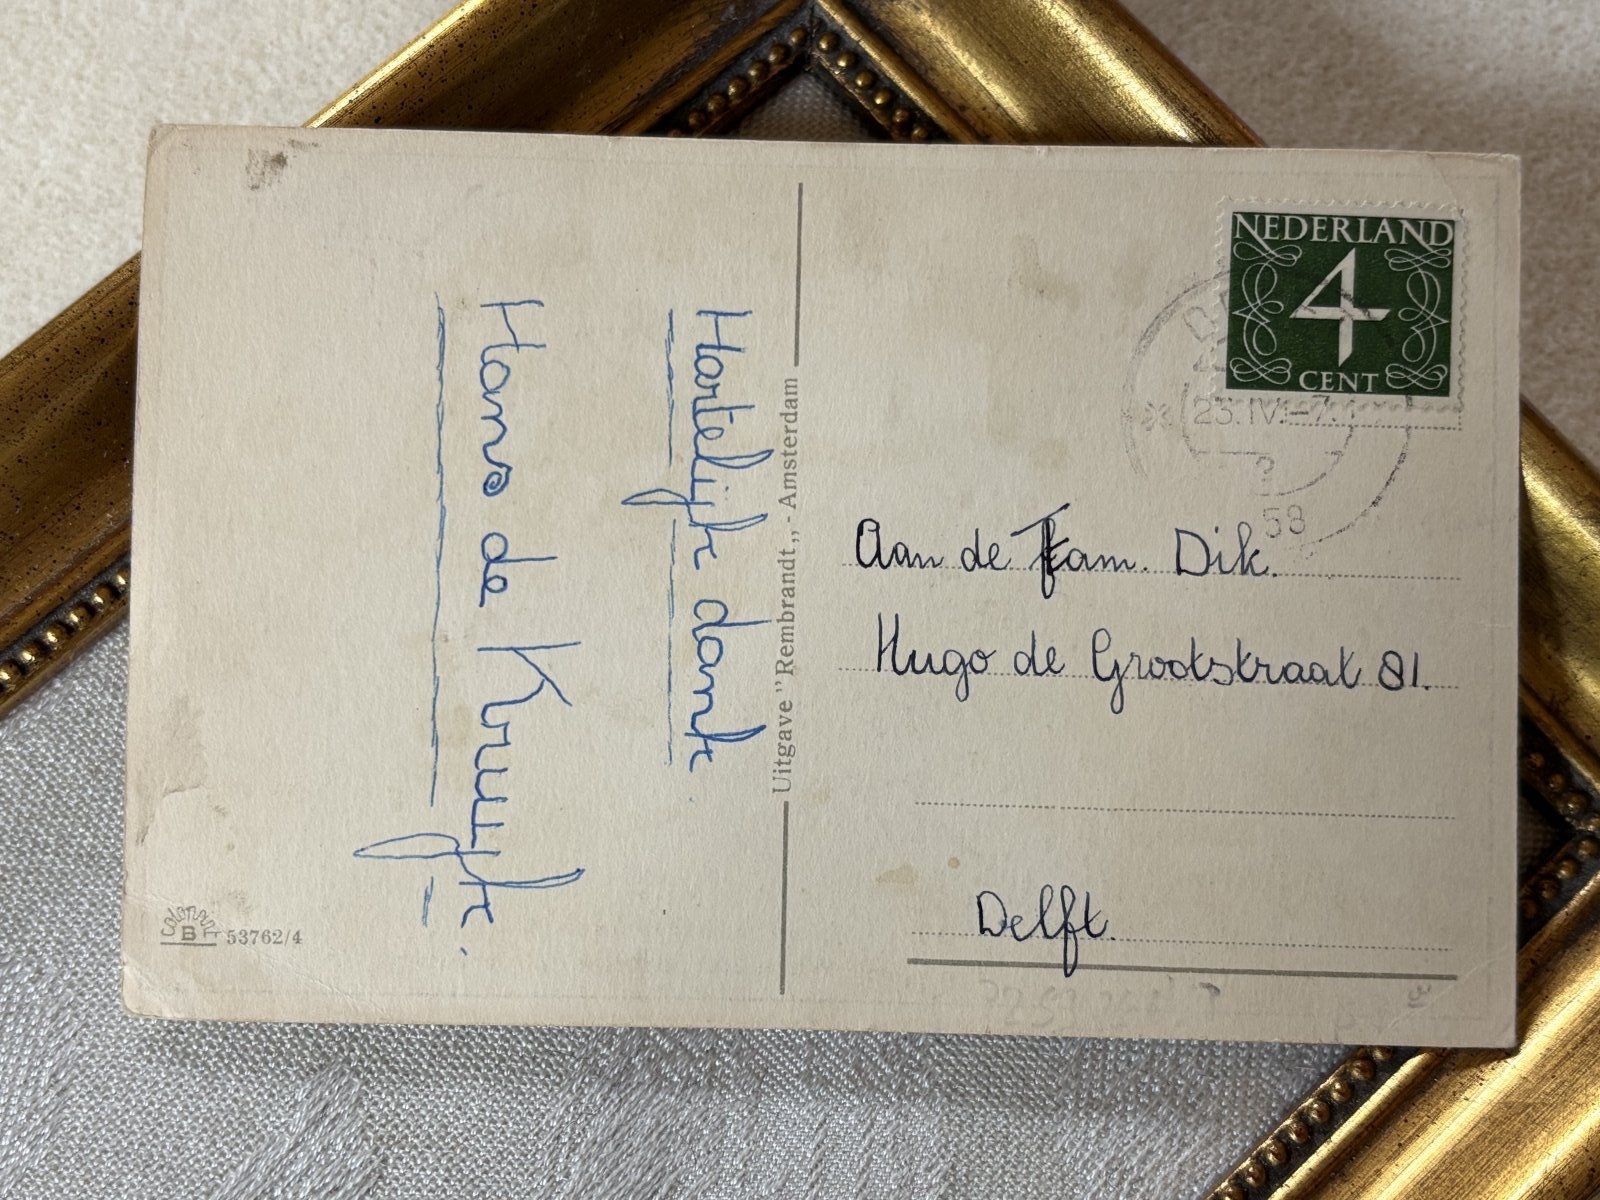 Hartelijk dank
Hans de Kruijk.
Uitgave "Rembrandt„ - Amsterdam
NEDERLAND
4
CENT
23.IV.-7.
58
Aan de fam. Dik.
Hugo de Grootstraat 81.
Delft.
Colorprint
B 53762/4